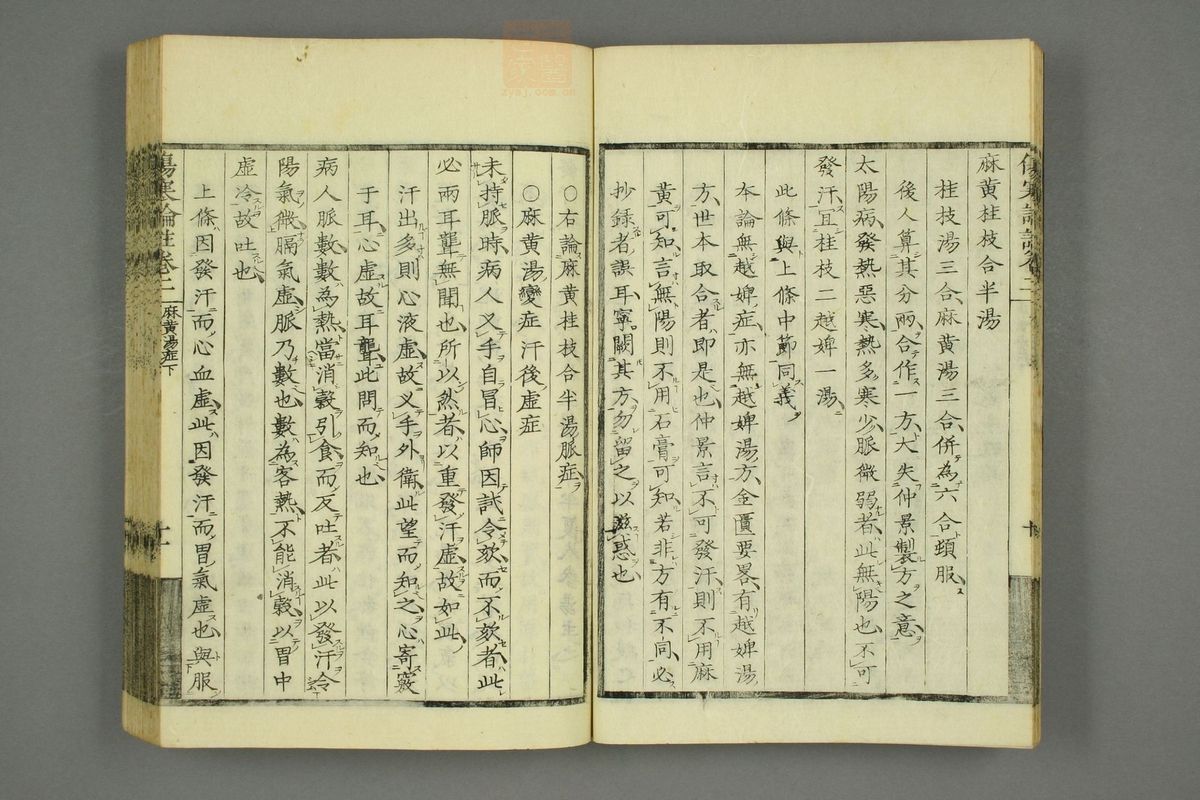 麻黄桂枝合半湯
桂枝湯三合、麻黄湯三合、併為六合頓服、
後人算其分兩、合作一方、大失仲景製方之意、
太陽病、發熱惡寒、熱多寒少、脈微弱者、此無陽也、不可
發汗、宜桂枝二越婢一湯、
此條與上條中節同義、
本論無越婢症、亦無越婢湯方、金匱要畧、有越婢湯
方、世本取合者、即是也、仲景言、不可發汗、則不用麻
黄可知、言無陽則不用石膏可知、若非方有不同、必
抄録者誤耳、寧闕其方、勿留之以滋惑也
○右論麻黄桂枝合半湯脈症、
○麻黄湯變症汗後虚症
未持脈時、病人叉手自冒心、師因試令欬、而不欬者、此
必兩耳聾無聞也、所以然者、以重發汗虚故如此、
汗出多則心液虚、故叉手外衛、此望而知之、心寄竅
于耳、心虚故耳聾、此問而知也
病人脈數、數為熱、當消穀引食、而反吐者、此以發汗令
陽氣微、膈氣虚、脈乃數也、數為客熱、不能消穀、以胃中
虚冷故吐也
上條因發汗而心血虚、此因發汗而胃氣虚也、與服
傷寒論註卷二
麻黄湯症下
十一
十
zysj.com.cn